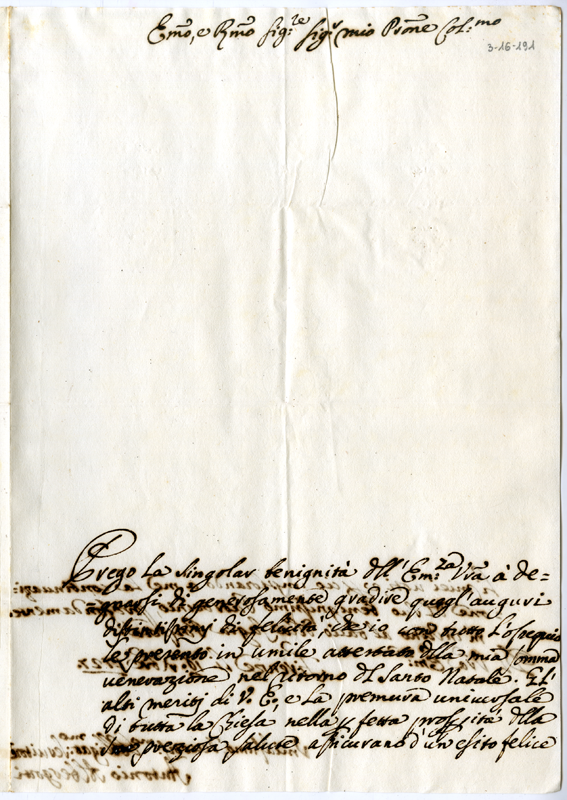 Em̃o, e Rm̃o Sig:re Sig:r mio Prõne Col:mo
3-16-191
Prego la singolar benignità dll' Em:za Vrã à de=
gnarsi di generosamente gradire quegl' auguri
distintissimi di felicità, che io con tutto l'ossequio
le presento in umile attestato dlla mia somma
venerazione nel ritorno dl Santo Natale. Gl'
alti meriti di V. E., e la premura universale
di tutta la Chiesa nella pfetta prosperità dlla
sua preziosa salute assicurano d'un esito felice